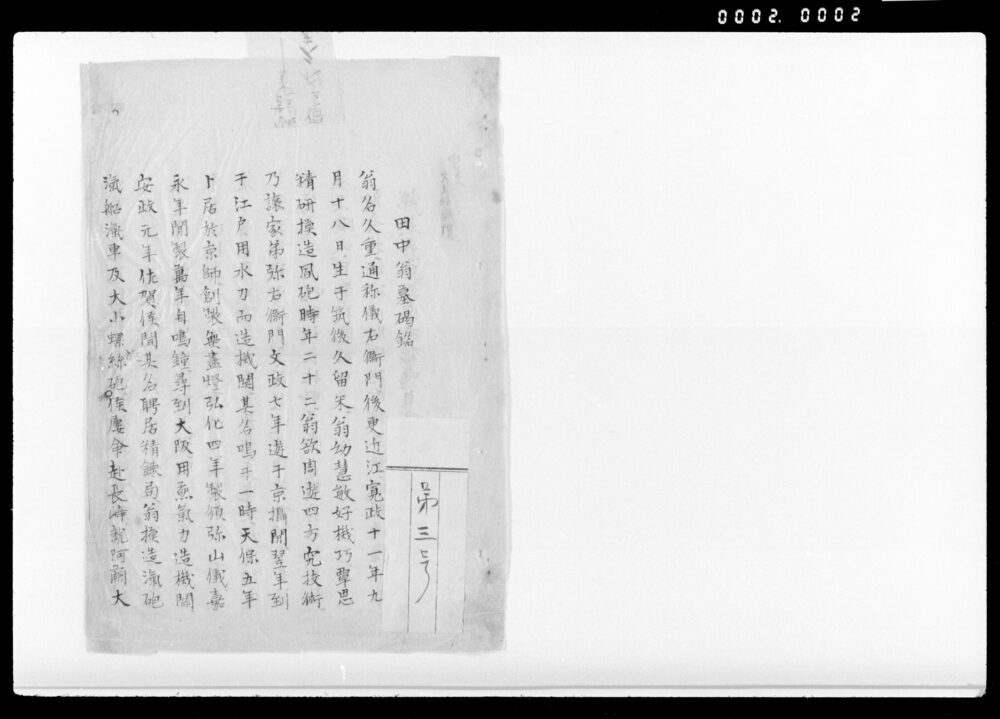 0002. 0002
第三号
田中翁墓碣銘
翁名久重通称儀右衛門後更近江寛政十一年九
月十八日生于筑後久留米翁幼慧敏好機巧覃思
精研摸造風砲時年二十二翁欲周遊四方究技術
乃譲家弟弥右衛門文政七年遊于京攝間翌年到
于江戸用水力而造機関其名鳴于一時天保五年
卜居於京師創製無盡燈弘化四年製須弥山儀嘉
永年間製萬年自鳴鐘尋到大阪用蒸氣力造機関
安政元年佐賀侯聞其名聘居精錬局翁摸造滊砲
滊船滊車及大小螺絲砲侯屢命赴長崎就阿蘭大